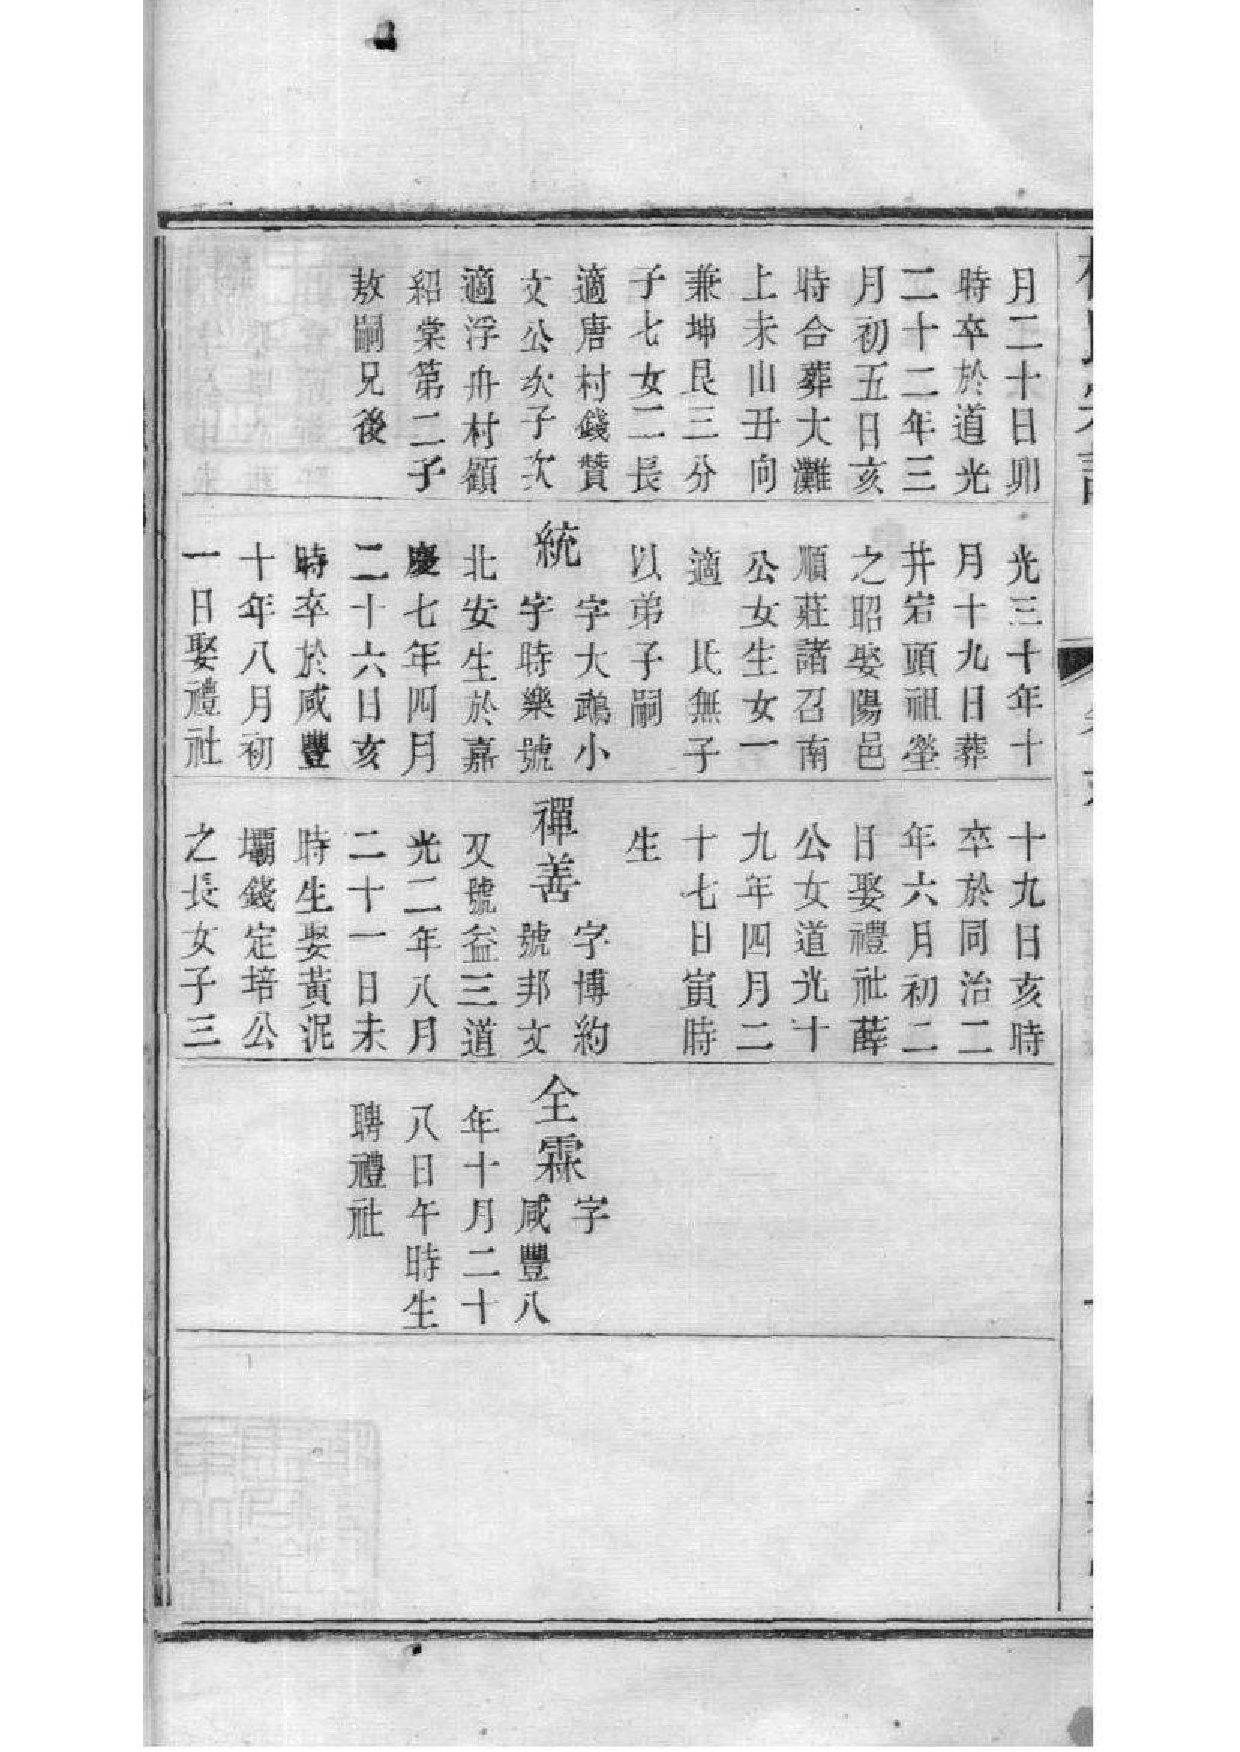 月二十日卯
時卒於道光
二十二年三
月初五日亥
時合葬大灘
上未山丑向
兼坤艮三分
子七女二長
適唐村錢贊
文公次子次
適浮舟村顧
紹棠第二子
敖嗣兄後
光三十年十
月十九日葬
井宕頭祖塋
之昭娶陽邑
順莊諸召南
公女生女一
適　氏無子
以弟子嗣
統
字大鵡小
字時樂號
北安生於嘉
慶七年四月
二十六日亥
時卒於咸豐
十年八月初
一日娶禮社
十九日亥時
卒於同治二
年六月初二
日娶禮社薛
公女道光十
九年四月二
十七日寅時
生
禪善
字博約
號邦文
又號益三道
光二年八月
二十一日未
時生娶黃泥
壩錢定培公
之長女子三
全霖
字
咸豐八
年十月二十
八日午時生
聘禮社